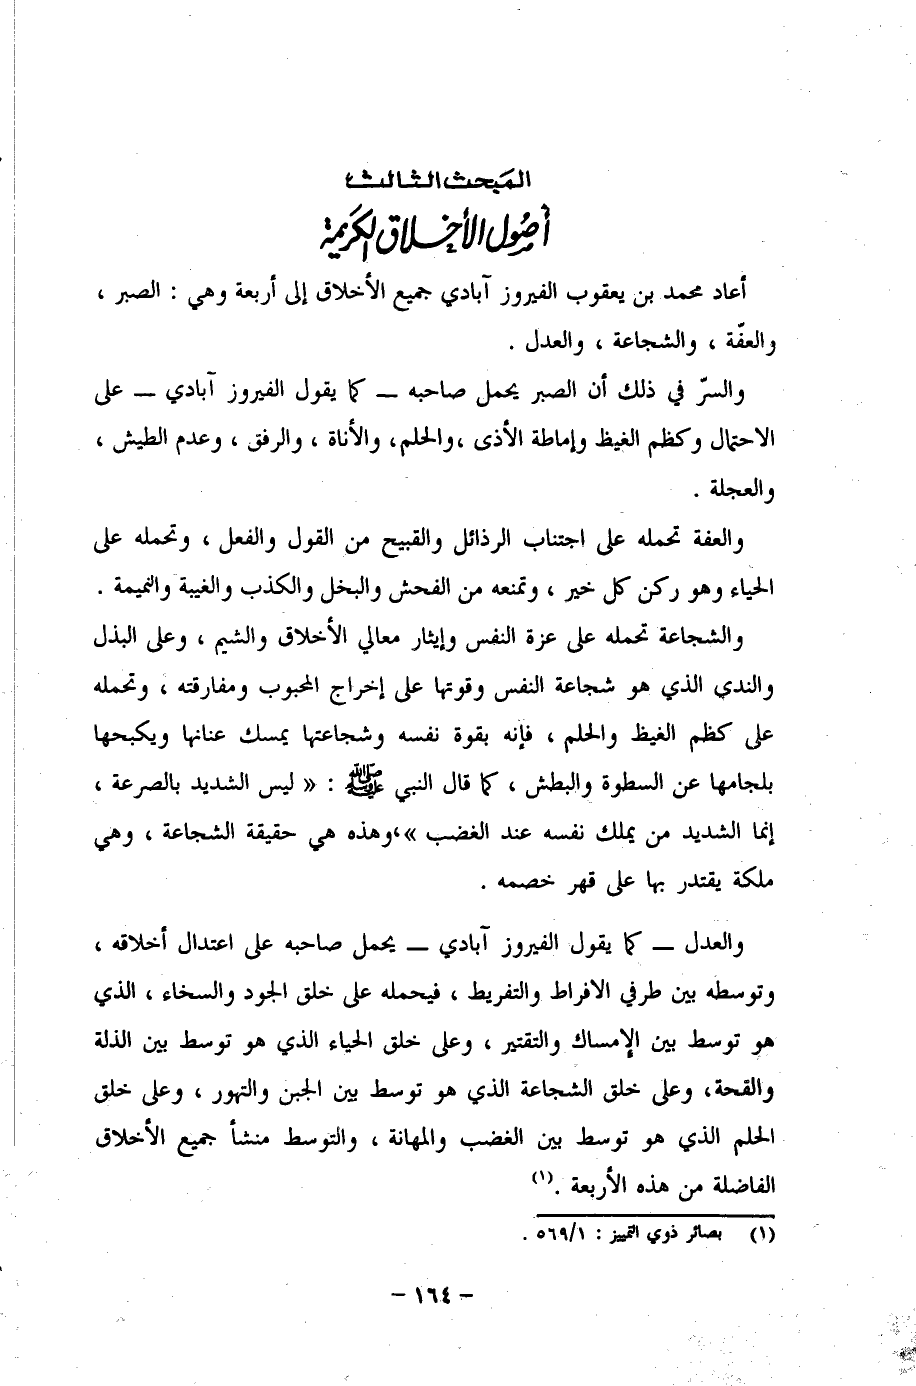 المبحث الثالث
أصول الأخلاق الكريمة
أعاد محمد بن يعقوب الفيروز آبادي جميع الأخلاق إلى أربعة وهي : الصبر ،
والعفّة ، والشجاعة ، والعدل .
والسرّ في ذلك أن الصبر يحمل صاحبه ــ كما يقول الفيروز آبادي ــ على
الاحتمال وكظم الغيظ وإماطة الأذى ،والحلم، والأناة ، والرفق ، وعدم الطيش ،
والعجلة .
والعفة تحمله على اجتناب الرذائل والقبيح من القول والفعل ، وتحمله على
الحياء وهو ركن كل خير ، وتمنعه من الفحش والبخل والكذب والغيبة والنميمة .
والشجاعة تحمله على عزة النفس وإيثار معالي الأخلاق والشيم ، وعلى البذل
والندي الذي هو شجاعة النفس وقوتها على إخراج المحبوب ومفارقته ، وتحمله
على كظم الغيظ والحلم ، فإنه بقوة نفسه وشجاعتها يمسك عنانها ويكبحها
بلجامها عن السطوة والبطش ، كما قال النبي ﷺ : « ليس الشديد بالصرعة ،
إنما الشديد من يملك نفسه عند الغضب »،وهذه هي حقيقة الشجاعة ، وهي
ملكة يقتدر بها على قهر خصمه .
والعدل ــ كما يقول الفيروز آبادي ــ يحمل صاحبه على اعتدال أخلاقه ،
وتوسطه بين طرفي الافراط والتفريط ، فيحمله على خلق الجود والسخاء ، الذي
هو توسط بين الإمساك والتقتير ، وعلى خلق الحياء الذي هو توسط بين الذلة
والقحة، وعلى خلق الشجاعة الذي هو توسط بين الجبن والتهور ، وعلى خلق
الحلم الذي هو توسط بين الغضب والمهانة ، والتوسط منشأ جميع الأخلاق
الفاضلة من هذه الأربعة .(١)
(١) بصائر ذوي التمييز : ٥٦٩/١ .
- ١٦٤ -